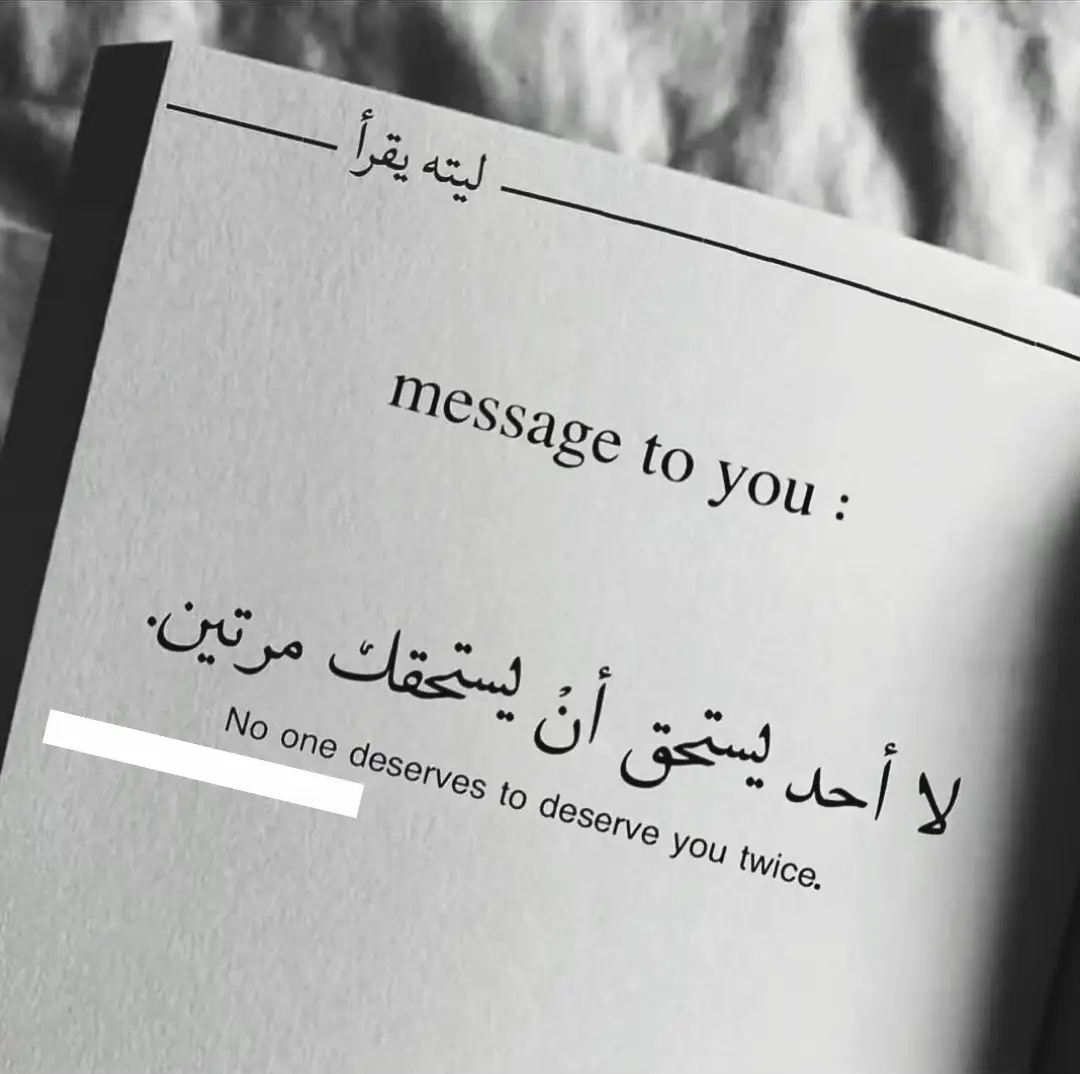 ليته يقرأ
message to you :
لا أحد يستحق أنُ يستحقك مرتين.
No one deserves to deserve you twice.